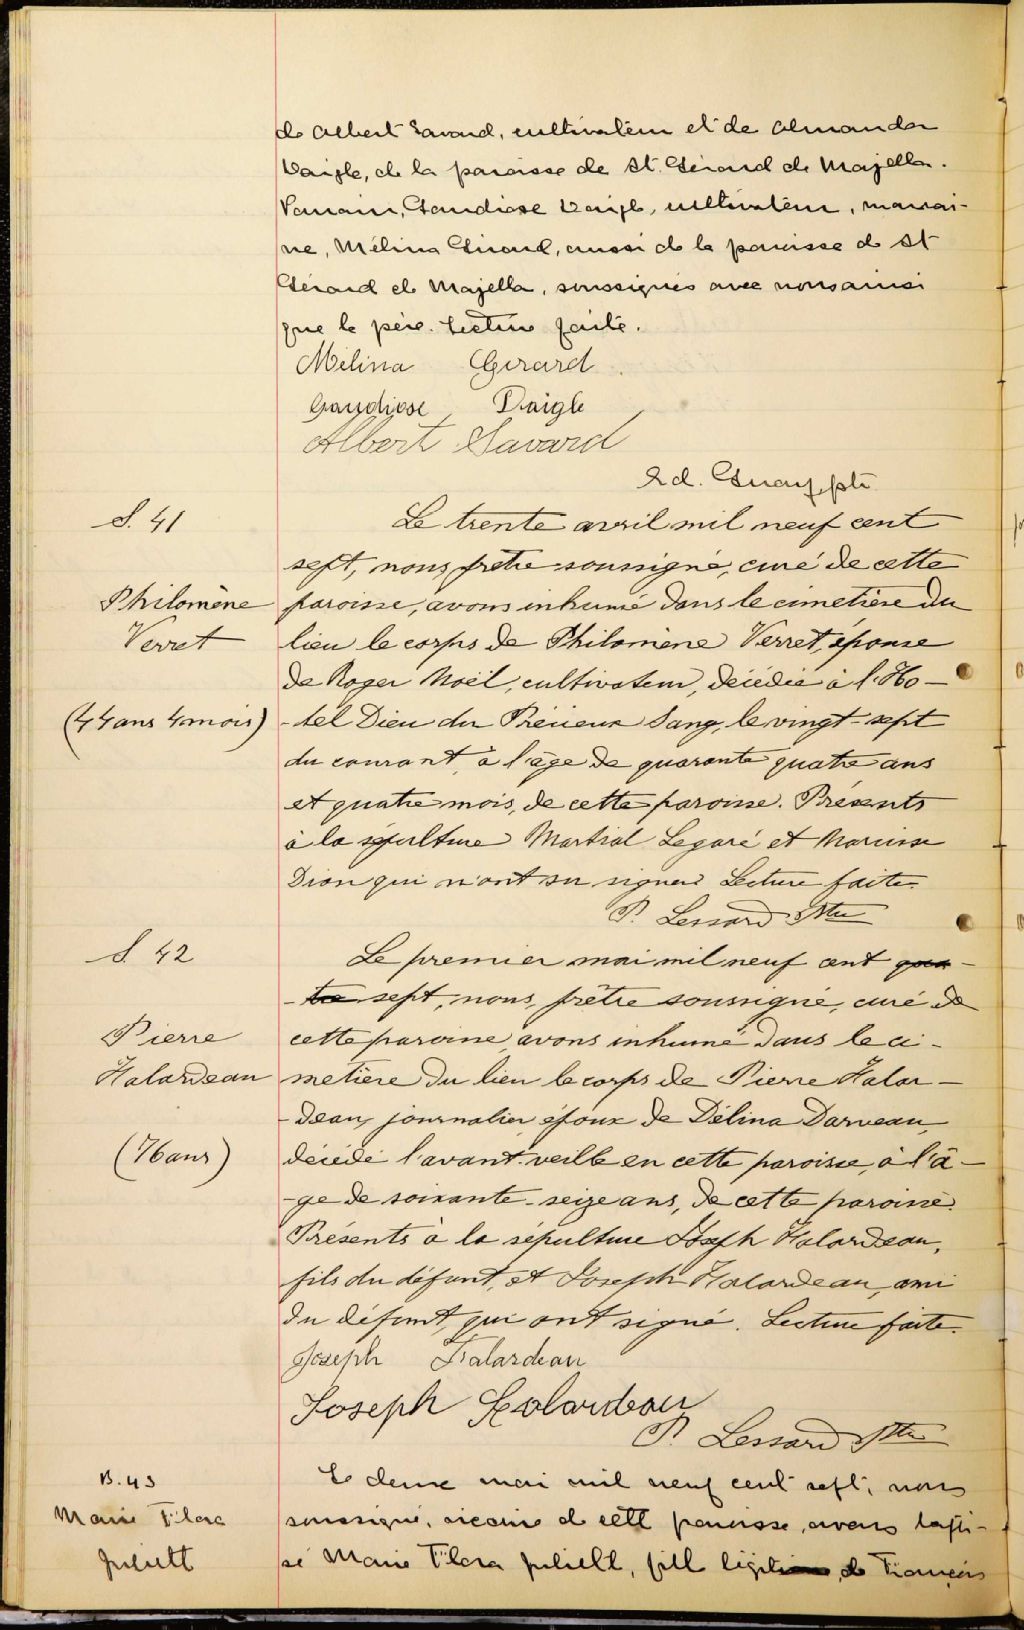 de Albert Savard, cultivateur et de Almanda
Daigle, de la paroisse de St. Gérard de Majella.
Parrain, Gaudiose Daigle, cultivateur, marrai-
ne, Mélina Girard, aussi de la paroisse de St
Gérard de Majella, soussignés avec nous ainsi
que le père. Lecture faite.
Mélina Girard
Gaudiose Daigle
Albert Savard
Ed. Guay, ptr
S. 41
Philomène
Verret
(44 ans 4 mois)
Le trente avril mil neuf cent
sept, nous, prêtre soussigné, curé de cette
paroisse, avons inhumé dans le cimetière du
lieu le corps de Philomène Verret, épouse
de Roger Noël, cultivateur, décédée à l'Ho-
-tel Dieu du Précieux Sang, le vingt-sept
du courant, à l'âge de quarante quatre ans
et quatre mois, de cette paroisse. Présents
à la sépulture Martial Legaré et Narcisse
Dion qui n'ont su signer. Lecture faite.
P. Lessard Ptre
S. 42
Pierre
Falardeau
(76 ans)
Le premier mai mil neuf cent qua-
-tre sept, nous, prêtre soussigné, curé de
cette paroisse, avons inhumé dans le ci-
metière du lieu le corps de Pierre Falar-
-deau, journalier, époux de Délina Darveau,
décédé l'avant-veille en cette paroisse, à l'â-
-ge de soixante-seize ans, de cette paroisse.
Présents à la sépulture Joseph Falardeau,
fils du défunt, et Joseph Falardeau, ami
du défunt, qui ont signé. Lecture faite.
Joseph Falardeau
Joseph Falardeau
P. Lessard Ptre
B. 43
Marie Flora
Juliett
Le deux mai mil neuf cent sept, nous
soussigné, vicaire de cette paroisse, avons bapti-
sé Marie Flora Juliett, fille légitime de François